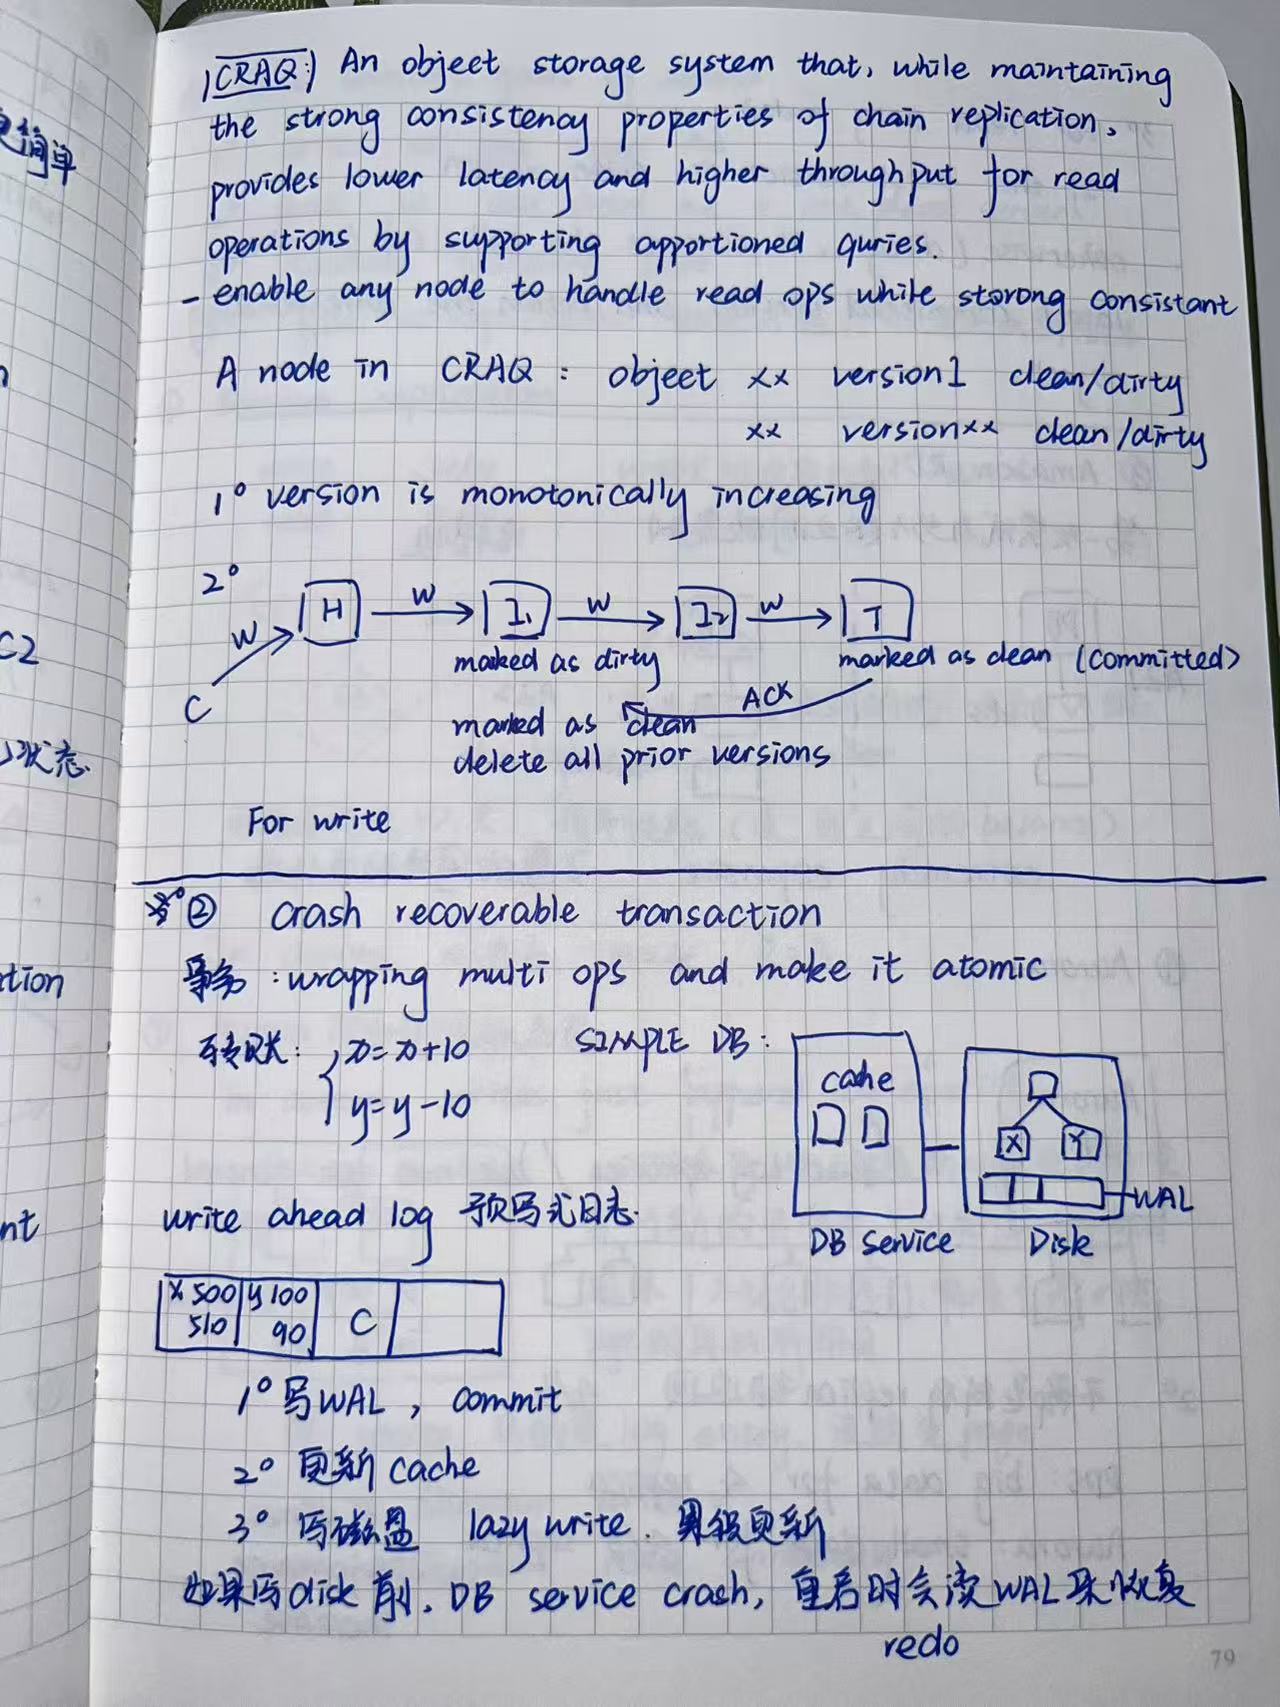 CRAQ: An object storage system that, while maintaining
the strong consistency properties of chain replication,
provides lower latency and higher throughput for read
operations by supporting apportioned quries.
- enable any node to handle read ops while storong consistant
A node in CRAQ: object xx version1 clean/dirty
xx versionxx clean/dirty
1° version is monotonically increasing
2°
H W I₁ W I₂ W T
W
C
marked as dirty
marked as clean (committed)
ACK
marked as clean
delete all prior versions
For write
② crash recoverable transaction
事务: wrapping multi ops and make it atomic
转账: x=x+10
y=y-10
SIMPLE DB:
cache
X Y
WAL
DB service Disk
write ahead log 预写式日志.
x 500 y 100
510 90 C
1° 写WAL, commit
2° 更新 cache
3° 写磁盘 lazy write. 累积更新
如果写disk前, DB service crash, 重启时会读WAL来恢复
redo
79
更简单
C2
状态
ation
nt